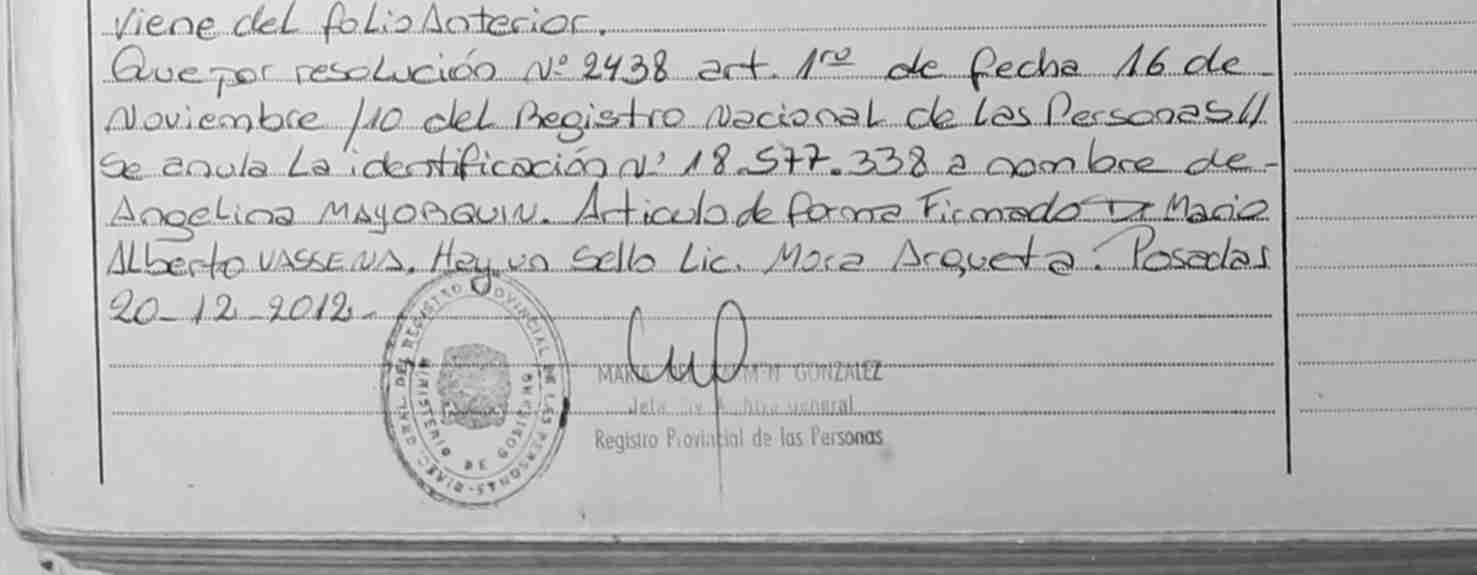 Viene del folio Anterior.
Que por resolución Nº 2438 art. 1ro de fecha 16 de
Noviembre /10 del Registro Nacional de Las Personas//
se anula La identificación Nº 18.577.338 a nombre de-
Angelina MAYORQUIN. Articulo de forma Firmado Dr Mario
ALberto VASSENA. Hay un Sello Lic. Mora Arqueta. Posadas
20-12-2012-
REGISTRO PROVINCIAL DE LAS PERSONAS
MINISTERIO DE GOBIERNO
GONZALEZ
General
Registro Provincial de las Personas